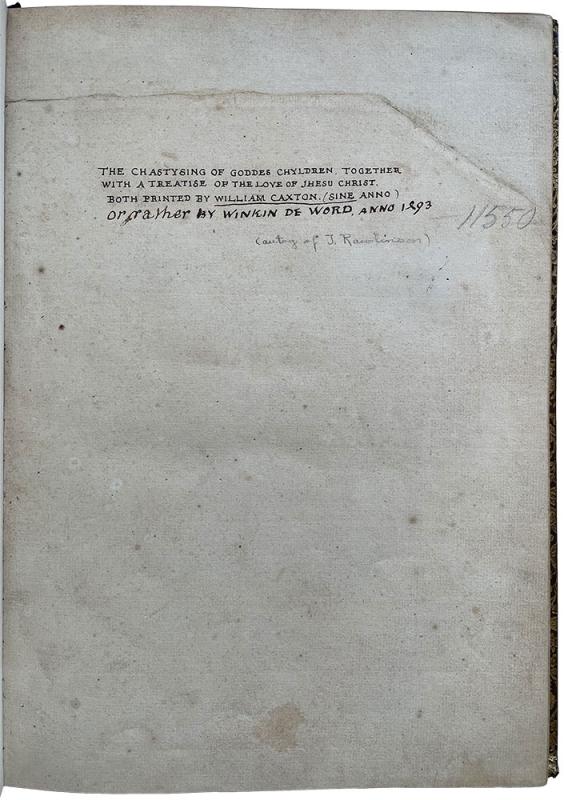 THE CHASTYSING OF GODDES CHYLDREN, TOGETHER
WITH A TREATISE OF THE LOVE OF JHESU CHRIST.
BOTH PRINTED BY WILLIAM CAXTON. (SINE ANNO)
or rather BY WINKIN DE WORD, ANNO 1493
11550
(autog of J. Rawlinson)